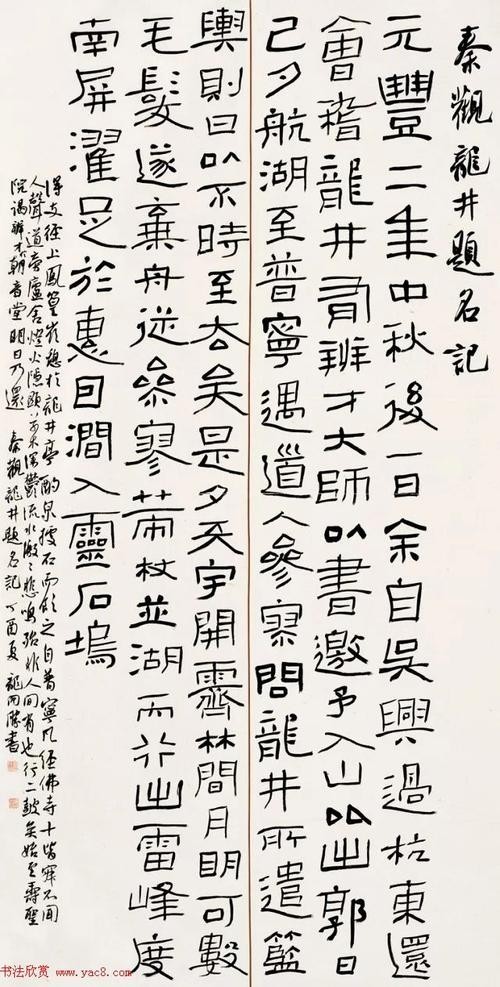 秦觀龍井題名記
元豐二年中秋後一日余自吳興過杭東還
會稽龍井有辨才大師以書邀予入山比出郭日
已夕航湖至普寧遇道人參寥問龍井所遣籃
輿則曰以不時至去矣是夕天宇開霽林間月明可數
毛髮遂棄舟從參寥策杖並湖而行出雷峰度
南屏濯足於惠因澗入靈石塢
得支徑上鳳篁嶺憩於龍井亭酌泉據石而飲之自普寧凡經佛寺十皆寂不聞
人聲道旁廬舍燈火隱顯草木深鬱流水激々悲鳴殆非人間有也行二鼓矣始至壽聖
院謁辨才朝音堂明日乃還 秦觀龍井題名記 丁酉夏 龍開勝書
书法欣赏 www.yac8.com